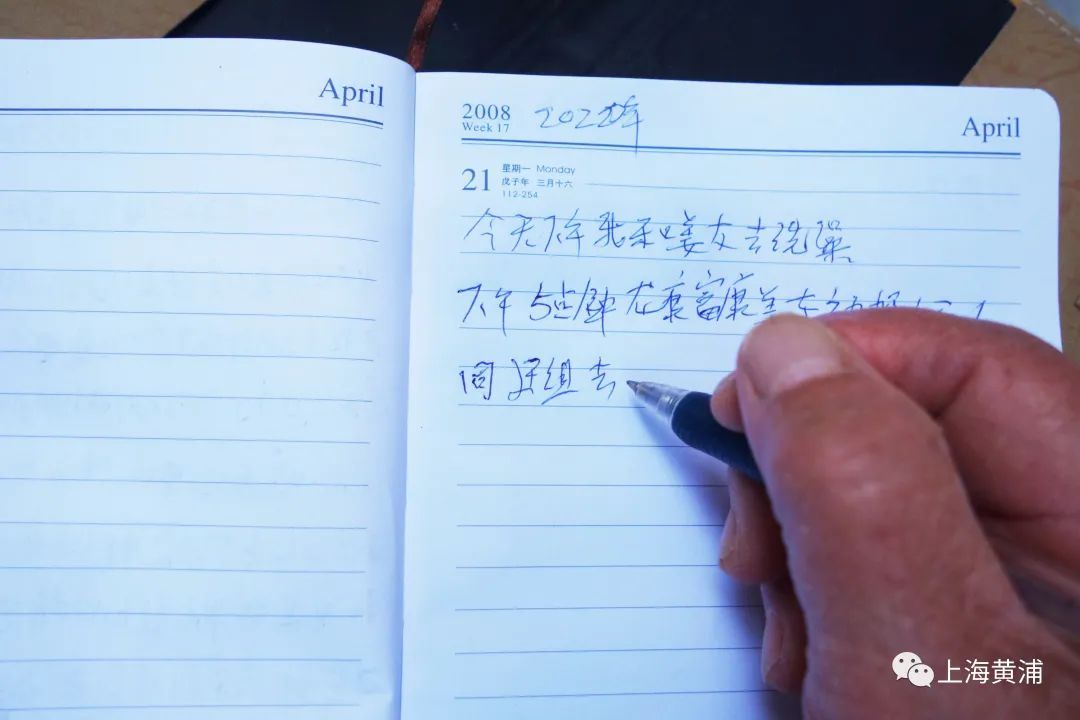 April
2008 2022年 April
Week 17
21 星期一 Monday
戊子年 三月十六
112-254
今天下午我和姜友去洗澡
下午5点钟 康富康
同 组去
上海黄浦